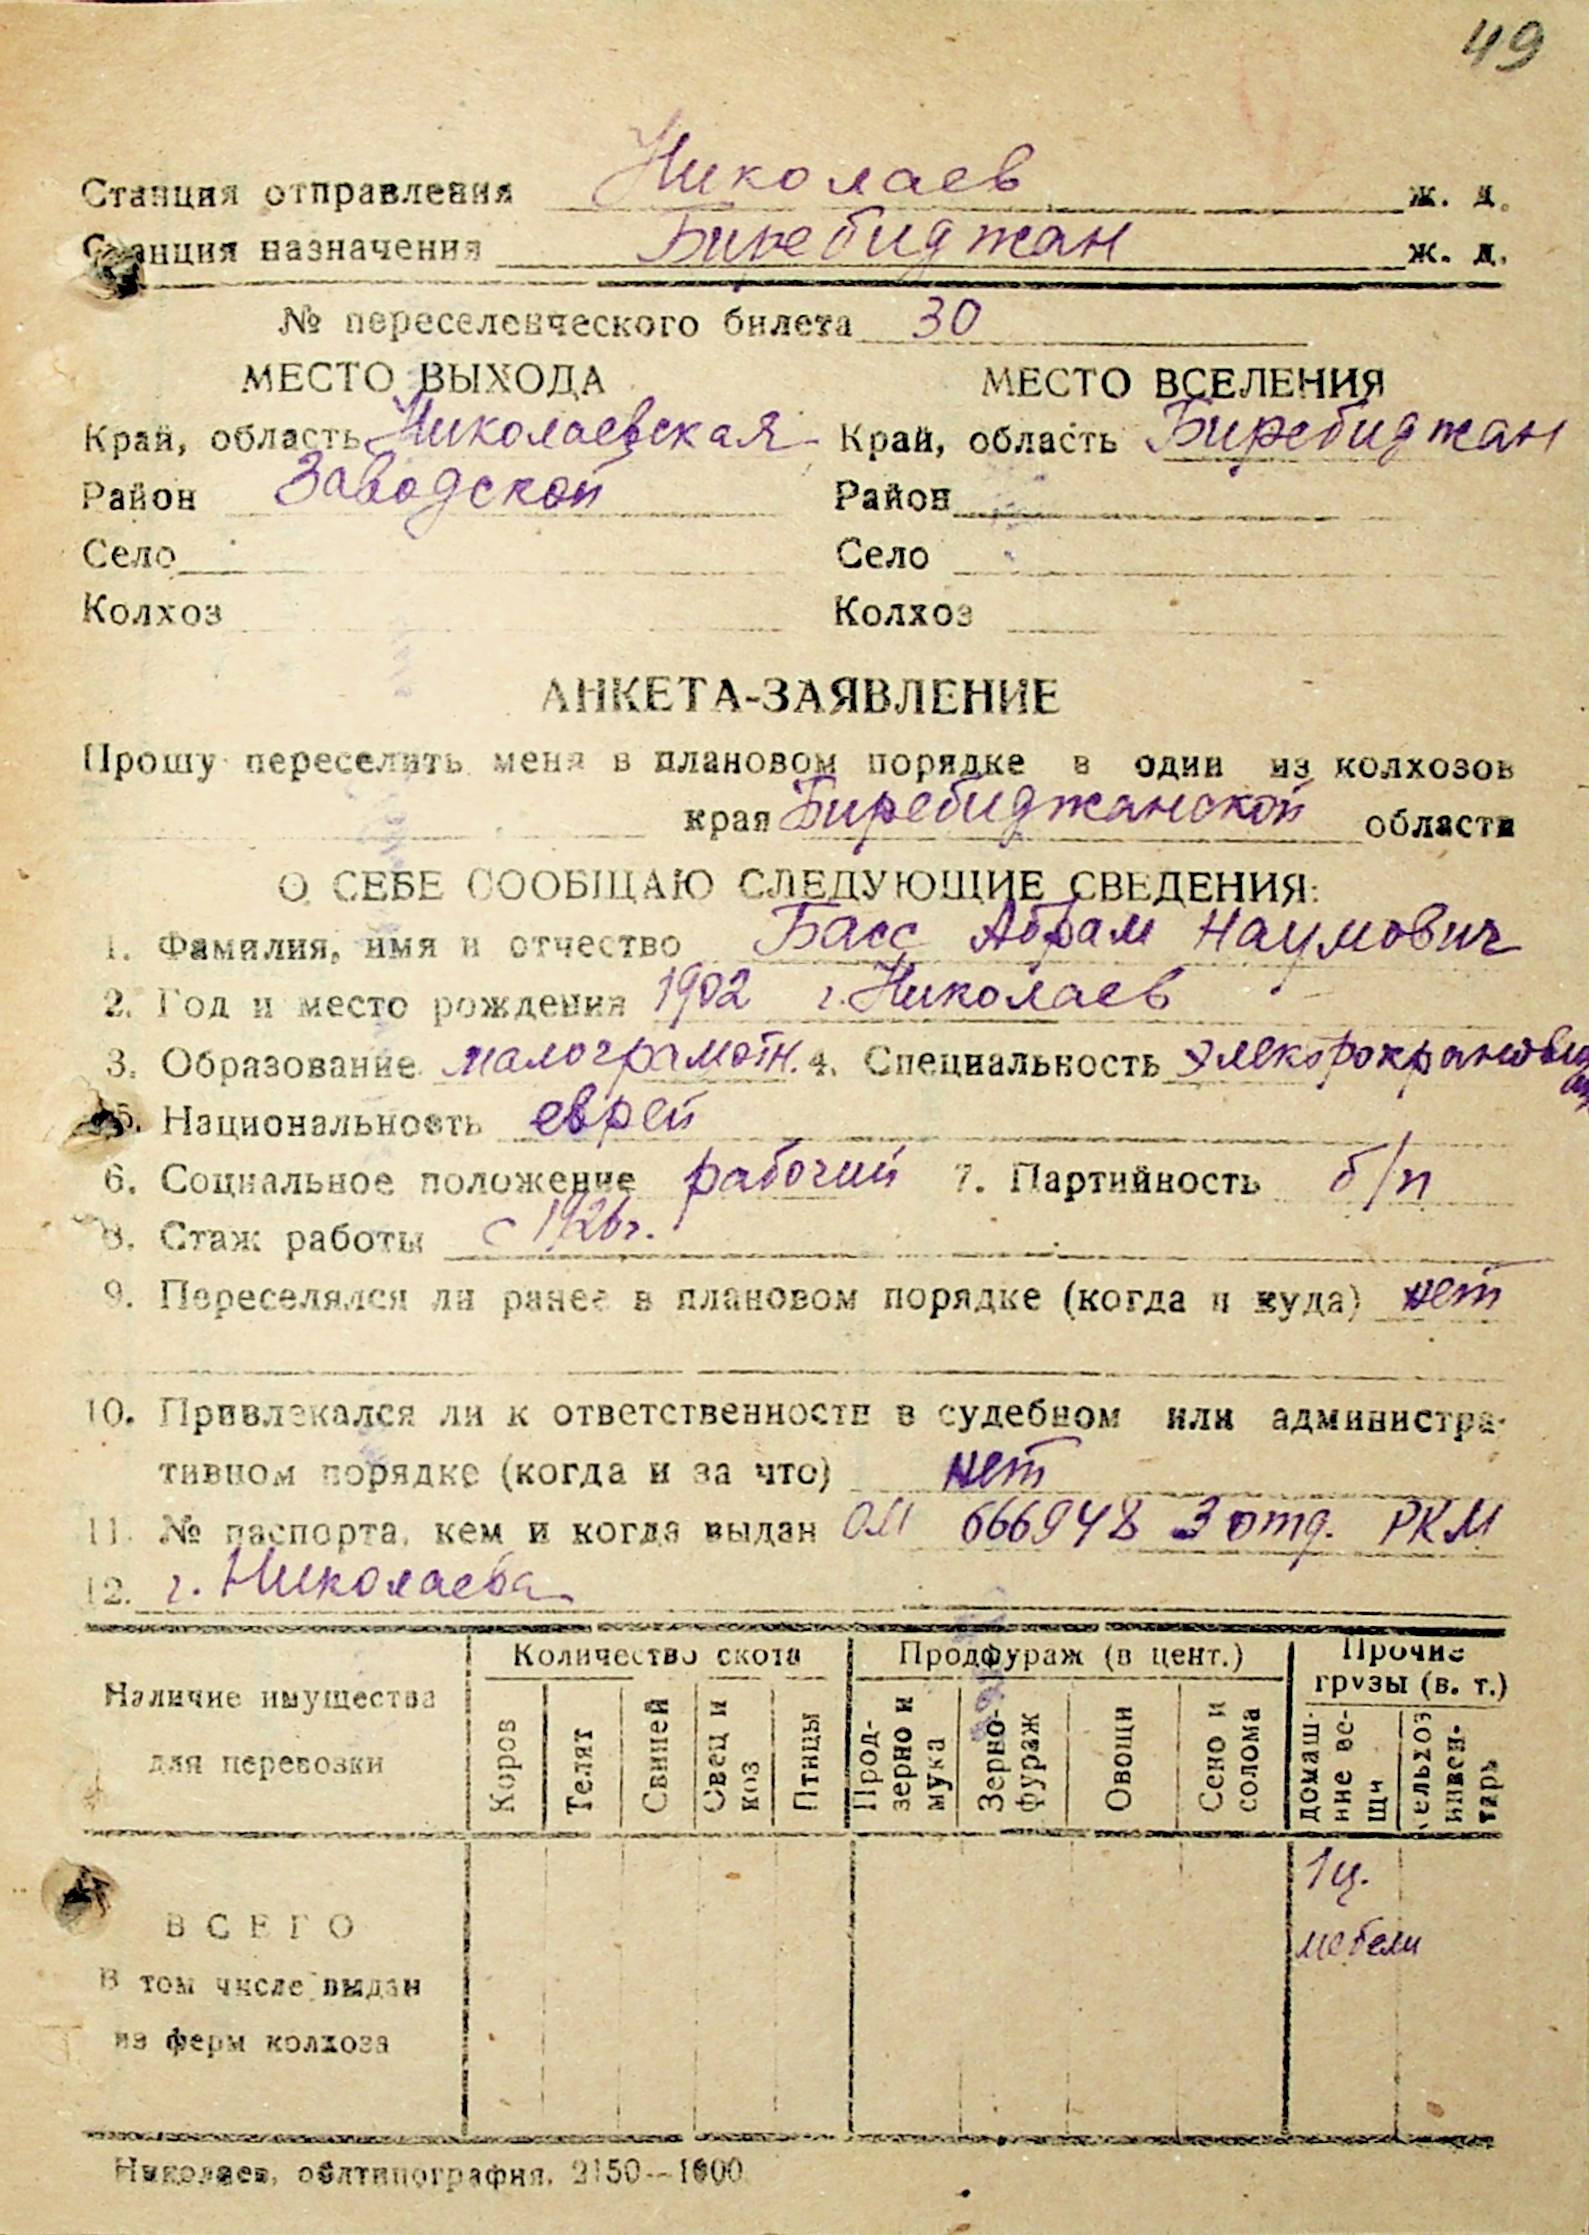 49
Станция отправления Николаев ж. д.
Станция назначения Биребиджан ж. д.
№ переселенческого билета 30
МЕСТО ВЫХОДА МЕСТО ВСЕЛЕНИЯ
Край, область Николаевская Край, область Биребиджан
Район Заводской Район
Село Село
Колхоз Колхоз
АНКЕТА-ЗАЯВЛЕНИЕ
Прошу переселить меня в плановом порядке в один из колхозов
края Биребиджанской области
О СЕБЕ СООБЩАЮ СЛЕДУЮЩИЕ СВЕДЕНИЯ:
1. Фамилия, имя и отчество Басс Абрам Наумович
2. Год и место рождения 1902 г. Николаев
3. Образование малограмотн. 4. Специальность
5. Национальность еврей
6. Социальное положение рабочий 7. Партийность б/п
8. Стаж работы с 1926г.
9. Переселялся ли ранее в плановом порядке (когда и куда) нет
10. Привлекался ли к ответственности в судебном или администра-
тивном порядке (когда и за что) нет
11. № паспорта, кем и когда выдан ОМ 666948 3 отд. РКМ
12. г. Николаева
Количество скота Продфураж (в цент.) Прочие
грузы (в. т.)
Наличие имущества
для перевозки
Коров Телят Свиней Овец и коз Птицы Прод-зерно и мука Зерно-фураж Овощи Сено и солома домаш-ние ве-щи сельхоз инвен-тарь
1ц.
ВСЕГО мебели
В том числе выдан
из ферм колхоза
Николаев, облтипография. 2150—1000